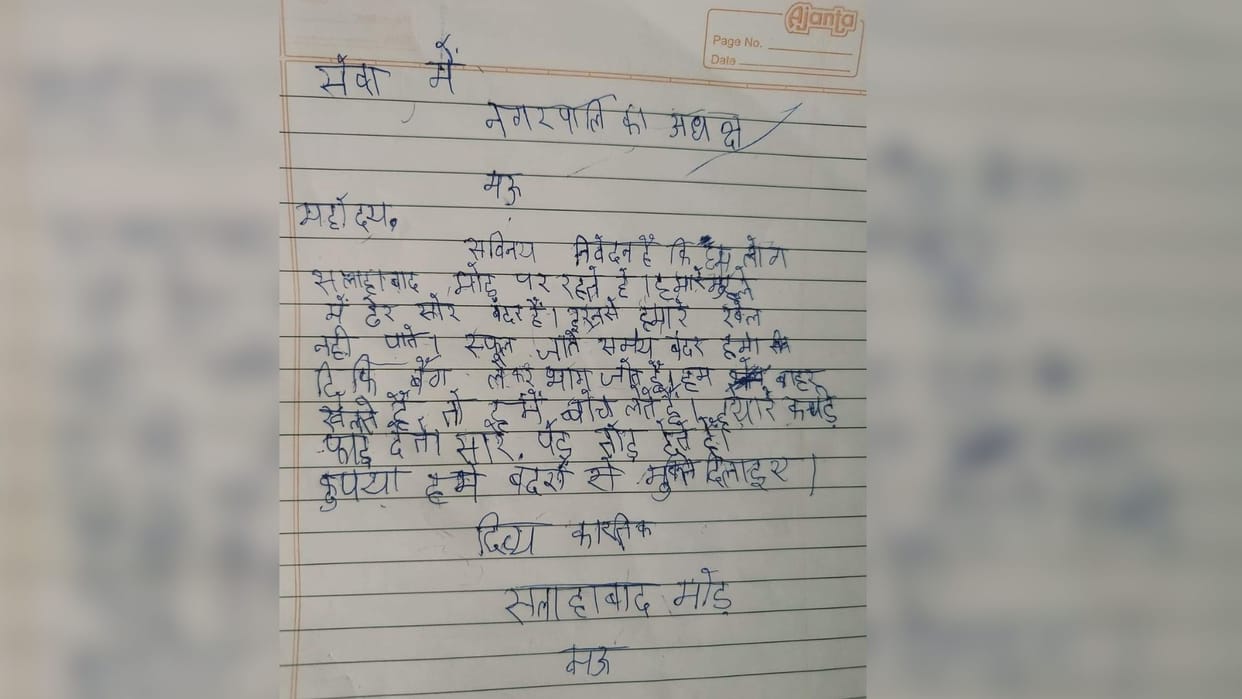 Ajanta
Page No.
Date
सेवा में
नगरपालिका अधक्ष
मऊ
महोदय,
सविनय निवेदन है कि हम लोग
सलाहाबाद मोड़ पर रहते है। हमारे मुहल्ले
में ढेर सारे बंदर हैं। इनसे हमारे खेल
नही पाते। स्कूल जाते समय बंदर हमा
बैग लेकर भाग जाते है। हम बाहर
खेलते हैं, तो हमें नोच लेते हैं। हमारे कपड़े
फाड़ देते। सारे पेड़ तोड़ देते है।
कृपया हमे बंदरों से मुक्ति दिलाइए।
दिव्य कार्तिक
सलाहाबाद मोड़
मऊ